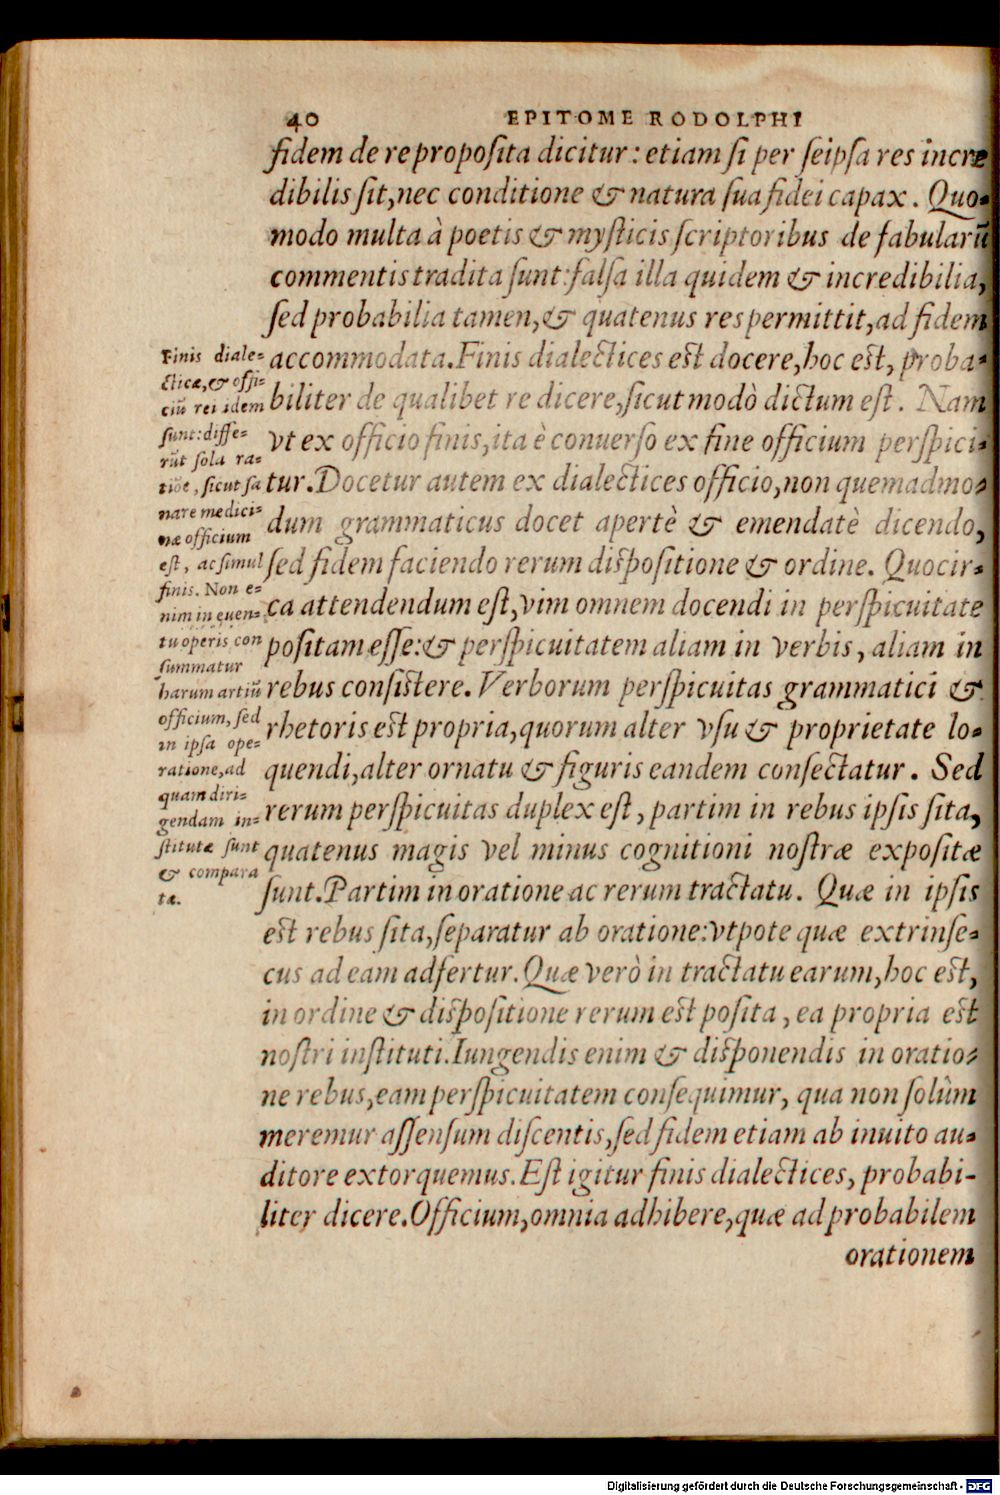 40 EPITOME RODOLPHI
fidem de re proposita dicitur: etiam si per seipsa res incre
dibilis sit, nec conditione & natura sua fidei capax. Quo-
modo multa à poetis & mysticis scriptoribus de fabularū
commentis tradita sunt: falsa illa quidem & incredibilia,
sed probabilia tamen, & quatenus res permittit, ad fidem
accommodata. Finis dialectices est docere, hoc est, proba-
biliter de qualibet re dicere, sicut modò dictum est. Nam
vt ex officio finis, ita è conuerso ex fine officium perspici-
tur. Docetur autem ex dialectices officio, non quemadmo-
dum grammaticus docet apertè & emendatè dicendo,
sed fidem faciendo rerum dispositione & ordine. Quocir-
ca attendendum est, vim omnem docendi in perspicuitate
positam esse: & perspicuitatem aliam in verbis, aliam in
rebus consistere. Verborum perspicuitas grammatici &
rhetoris est propria, quorum alter vsu & proprietate lo-
quendi, alter ornatu & figuris eandem consectatur. Sed
rerum perspicuitas duplex est, partim in rebus ipsis sita,
quatenus magis vel minus cognitioni nostræ expositæ
sunt. Partim in oratione ac rerum tractatu. Quæ in ipsis
est rebus sita, separatur ab oratione: vtpote quæ extrinse-
cus ad eam adfertur. Quæ verò in tractatu earum, hoc est,
in ordine & dispositione rerum est posita, ea propria est
nostri instituti. Iungendis enim & disponendis in oratio-
ne rebus, eam perspicuitatem consequimur, qua non solùm
meremur assensum discentis, sed fidem etiam ab inuito au-
ditore extorquemus. Est igitur finis dialectices, probabi-
liter dicere. Officium, omnia adhibere, quæ ad probabilem
orationem
Finis diale-
cticæ, & offi-
ciū rei idem
sunt: diffe-
rūt sola ra-
tiōe, sicut sa
nare medici-
næ officium
est, ac simul
finis. Non e-
nim in euen-
tu operis con
summatur
harum artiū
officium, sed
in ipsa ope-
ratione, ad
quam diri-
gendam in-
stitutæ sunt
& compara
tæ.
Digitalisierung gefördert durch die Deutsche Forschungsgemeinschaft - DFG